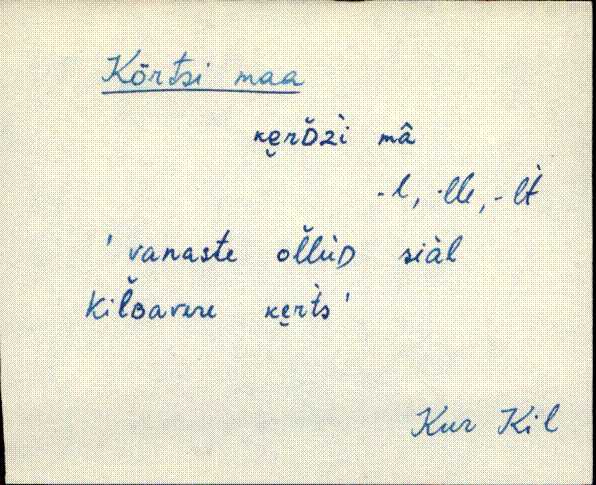 Kõrtsi maa
ᴋe̮rᴅ̆zì mâ
-l, -lle, -lt̀
' vanaste ol̆lùᴅ siàl
Kil̆ʙavere ᴋe̮rt̀s '
Kur Kil